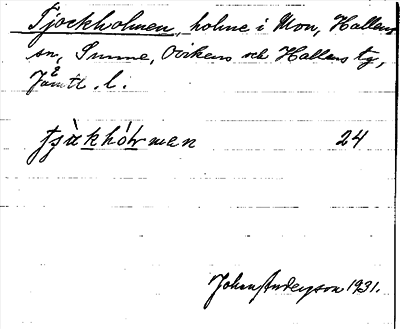 Tjockholmen, holme i Mon, Hallens
sn, Sunne, Ovikens och Hallens tg,
Jämtl. l.
tjùkhólman 24
Johan Anderson 1931.